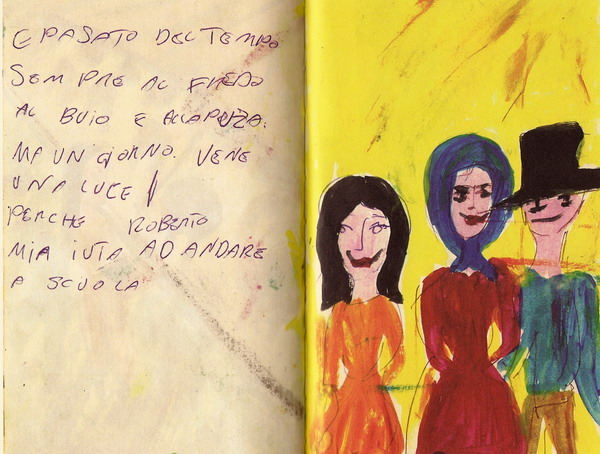 E PASATO DEL TEMPO
SEMPRE AL FREDO
AL BUIO E ALLA PUZA.
MA UN GIORNO. VENE
UNA LUCE
PERCHE ROBERTO
MIA IUTA AD ANDARE
A SCUOLA